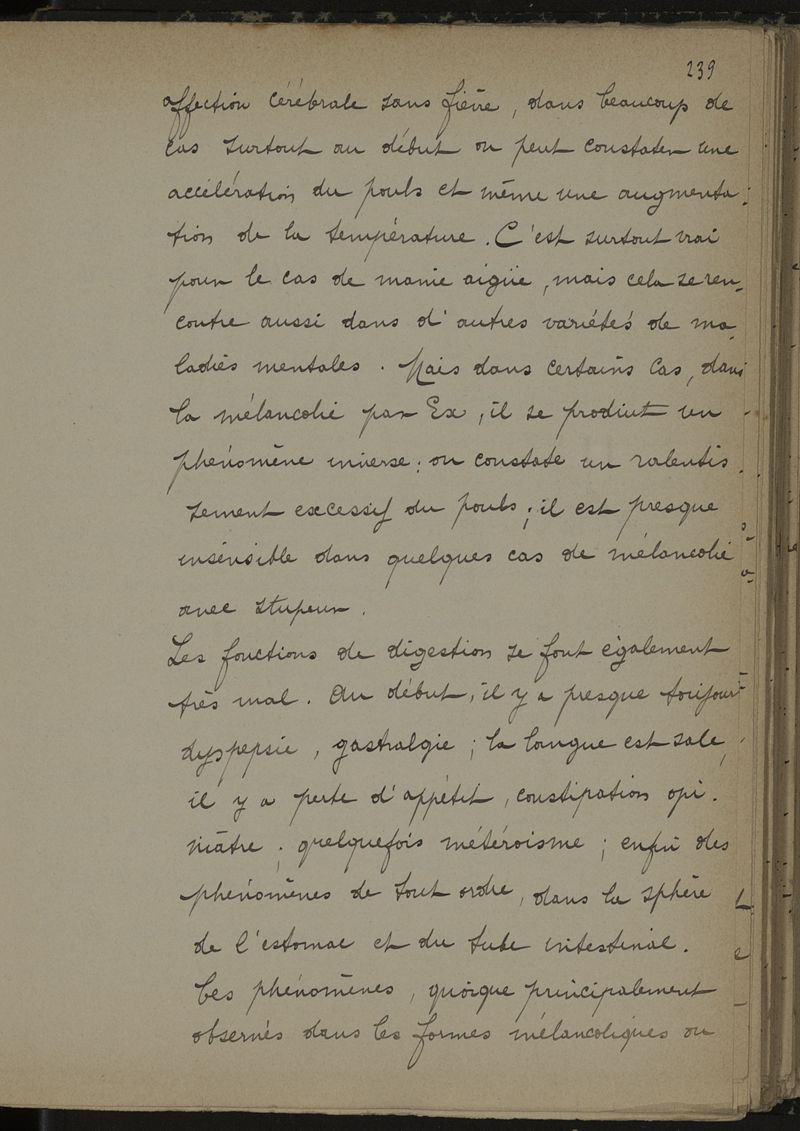 239
affection cérébrale sans fièvre, dans beaucoup de
cas surtout au début on peut constater une
accélération du pouls et même une augmenta-
tion de la température. C'est surtout vrai
pour le cas de manie aigüe, mais cela se ren-
contre aussi dans d'autres variétés de ma-
ladies mentales. Mais dans certains cas, dans
la mélancolie par Ex, il se produit un
phénomène inverse : on constate un ralentis-
sement excessif du pouls ; il est presque
insensible dans quelques cas de mélancolie
avec stupeur.
Les fonctions de digestion se font également
très mal. Au début, il y a presque toujours
dyspepsie, gastralgie ; la langue est sale,
il y a perte d'appétit, constipation opi-
niâtre ; quelquefois météroisme ; enfin des
phénomènes de tout ordre, dans la sphère
de l'estomac et du tube intestinal.
Ces phénomènes, quoique principalement
observés dans les formes mélancoliques ou